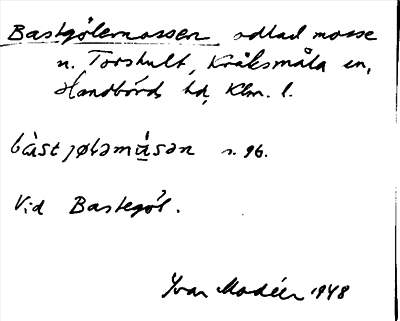 Bastgölemossen odlad mosse
n. Torshult, Kråksmåla sn,
Handbörds hd, Klm. l.
bàstjøləmåsən s. 96.
Vid Bastegöl.
Ivar Modéer 1948